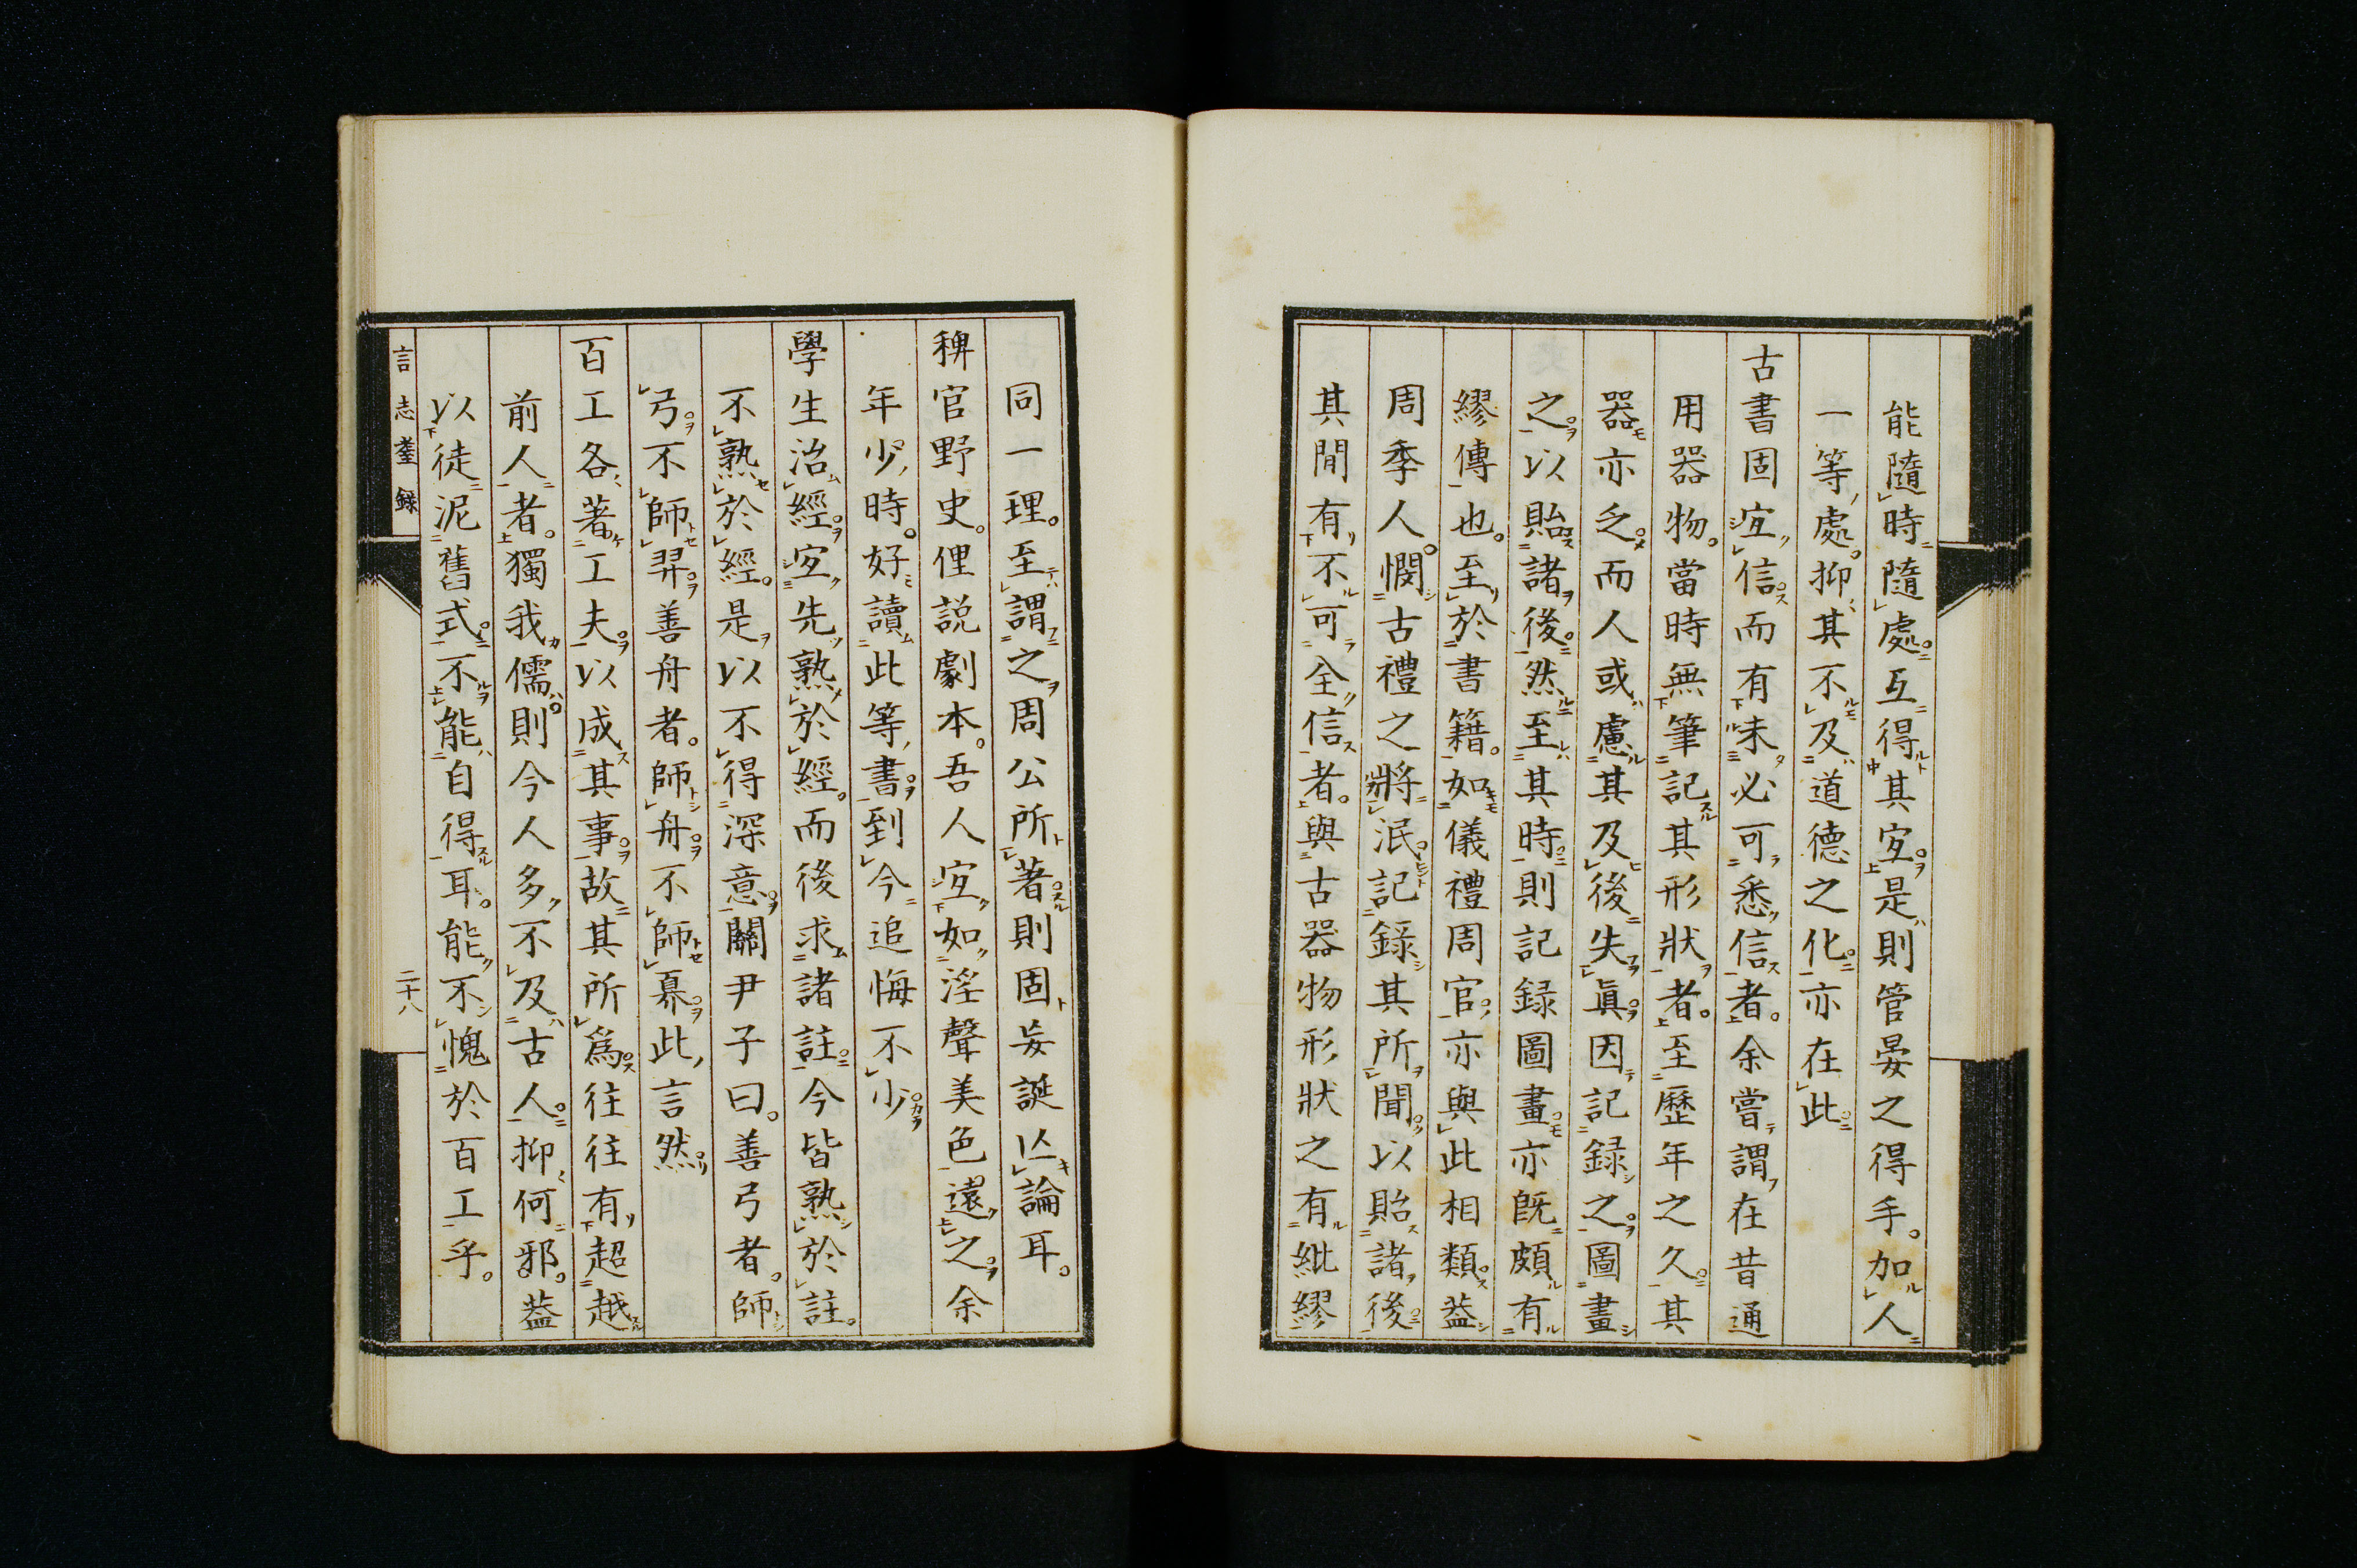 能隨時隨處互得其宜是則管晏之得手。加人
一等處。抑其不及道德之化亦在此
古書固宜信而有未必可悉信者。余嘗謂在昔通
用器物。當時無筆記其形狀者。至歷年之久其
器亦乏而人或慮其及後失眞因記録之圖畫
之以貽諸後然至其時則記録圖畫亦既頗有
繆傳也。至於書籍。如儀禮周官亦與此相類葢
周季人。憫古禮之將泯記錄其所聞以貽諸後
其閒有不可全信者。與古器物形狀之有紕繆
同一理。至謂之周公所著則固妄誕亾論耳。
稗官野史。俚説劇本。吾人宜如淫聲美色遠之余
年少時。好讀此等書到今追悔不少
學生治經宜先熟於經。而後求諸註今皆熟於註。
不熟於經。是以不得深意關尹子曰。善弓者。師
弓不師羿善舟者。師舟不師奡此言然
百工各著工夫以成其事故其所爲往往有超越
前人者。獨我儒則今人多不及古人抑何邪。葢
以徒泥舊式不能自得耳。能不愧於百工乎。
言志耋録
二十八